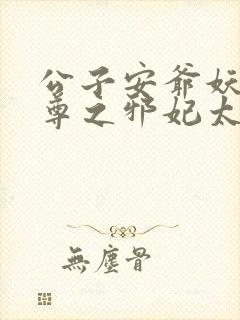 公子安爷妖
尊之邪妃太
無塵骨